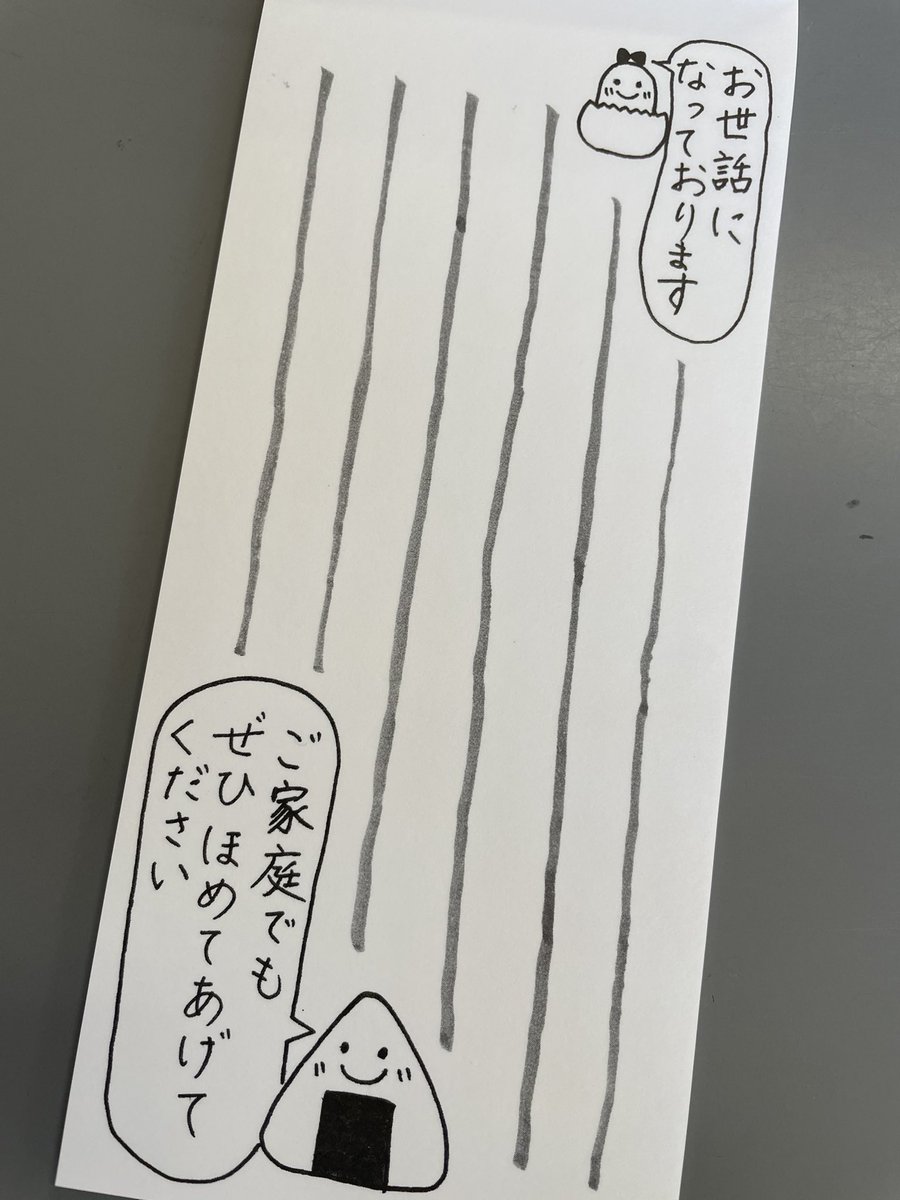 お世話に
なっております
ご家庭でも
ぜひほめてあげて
ください